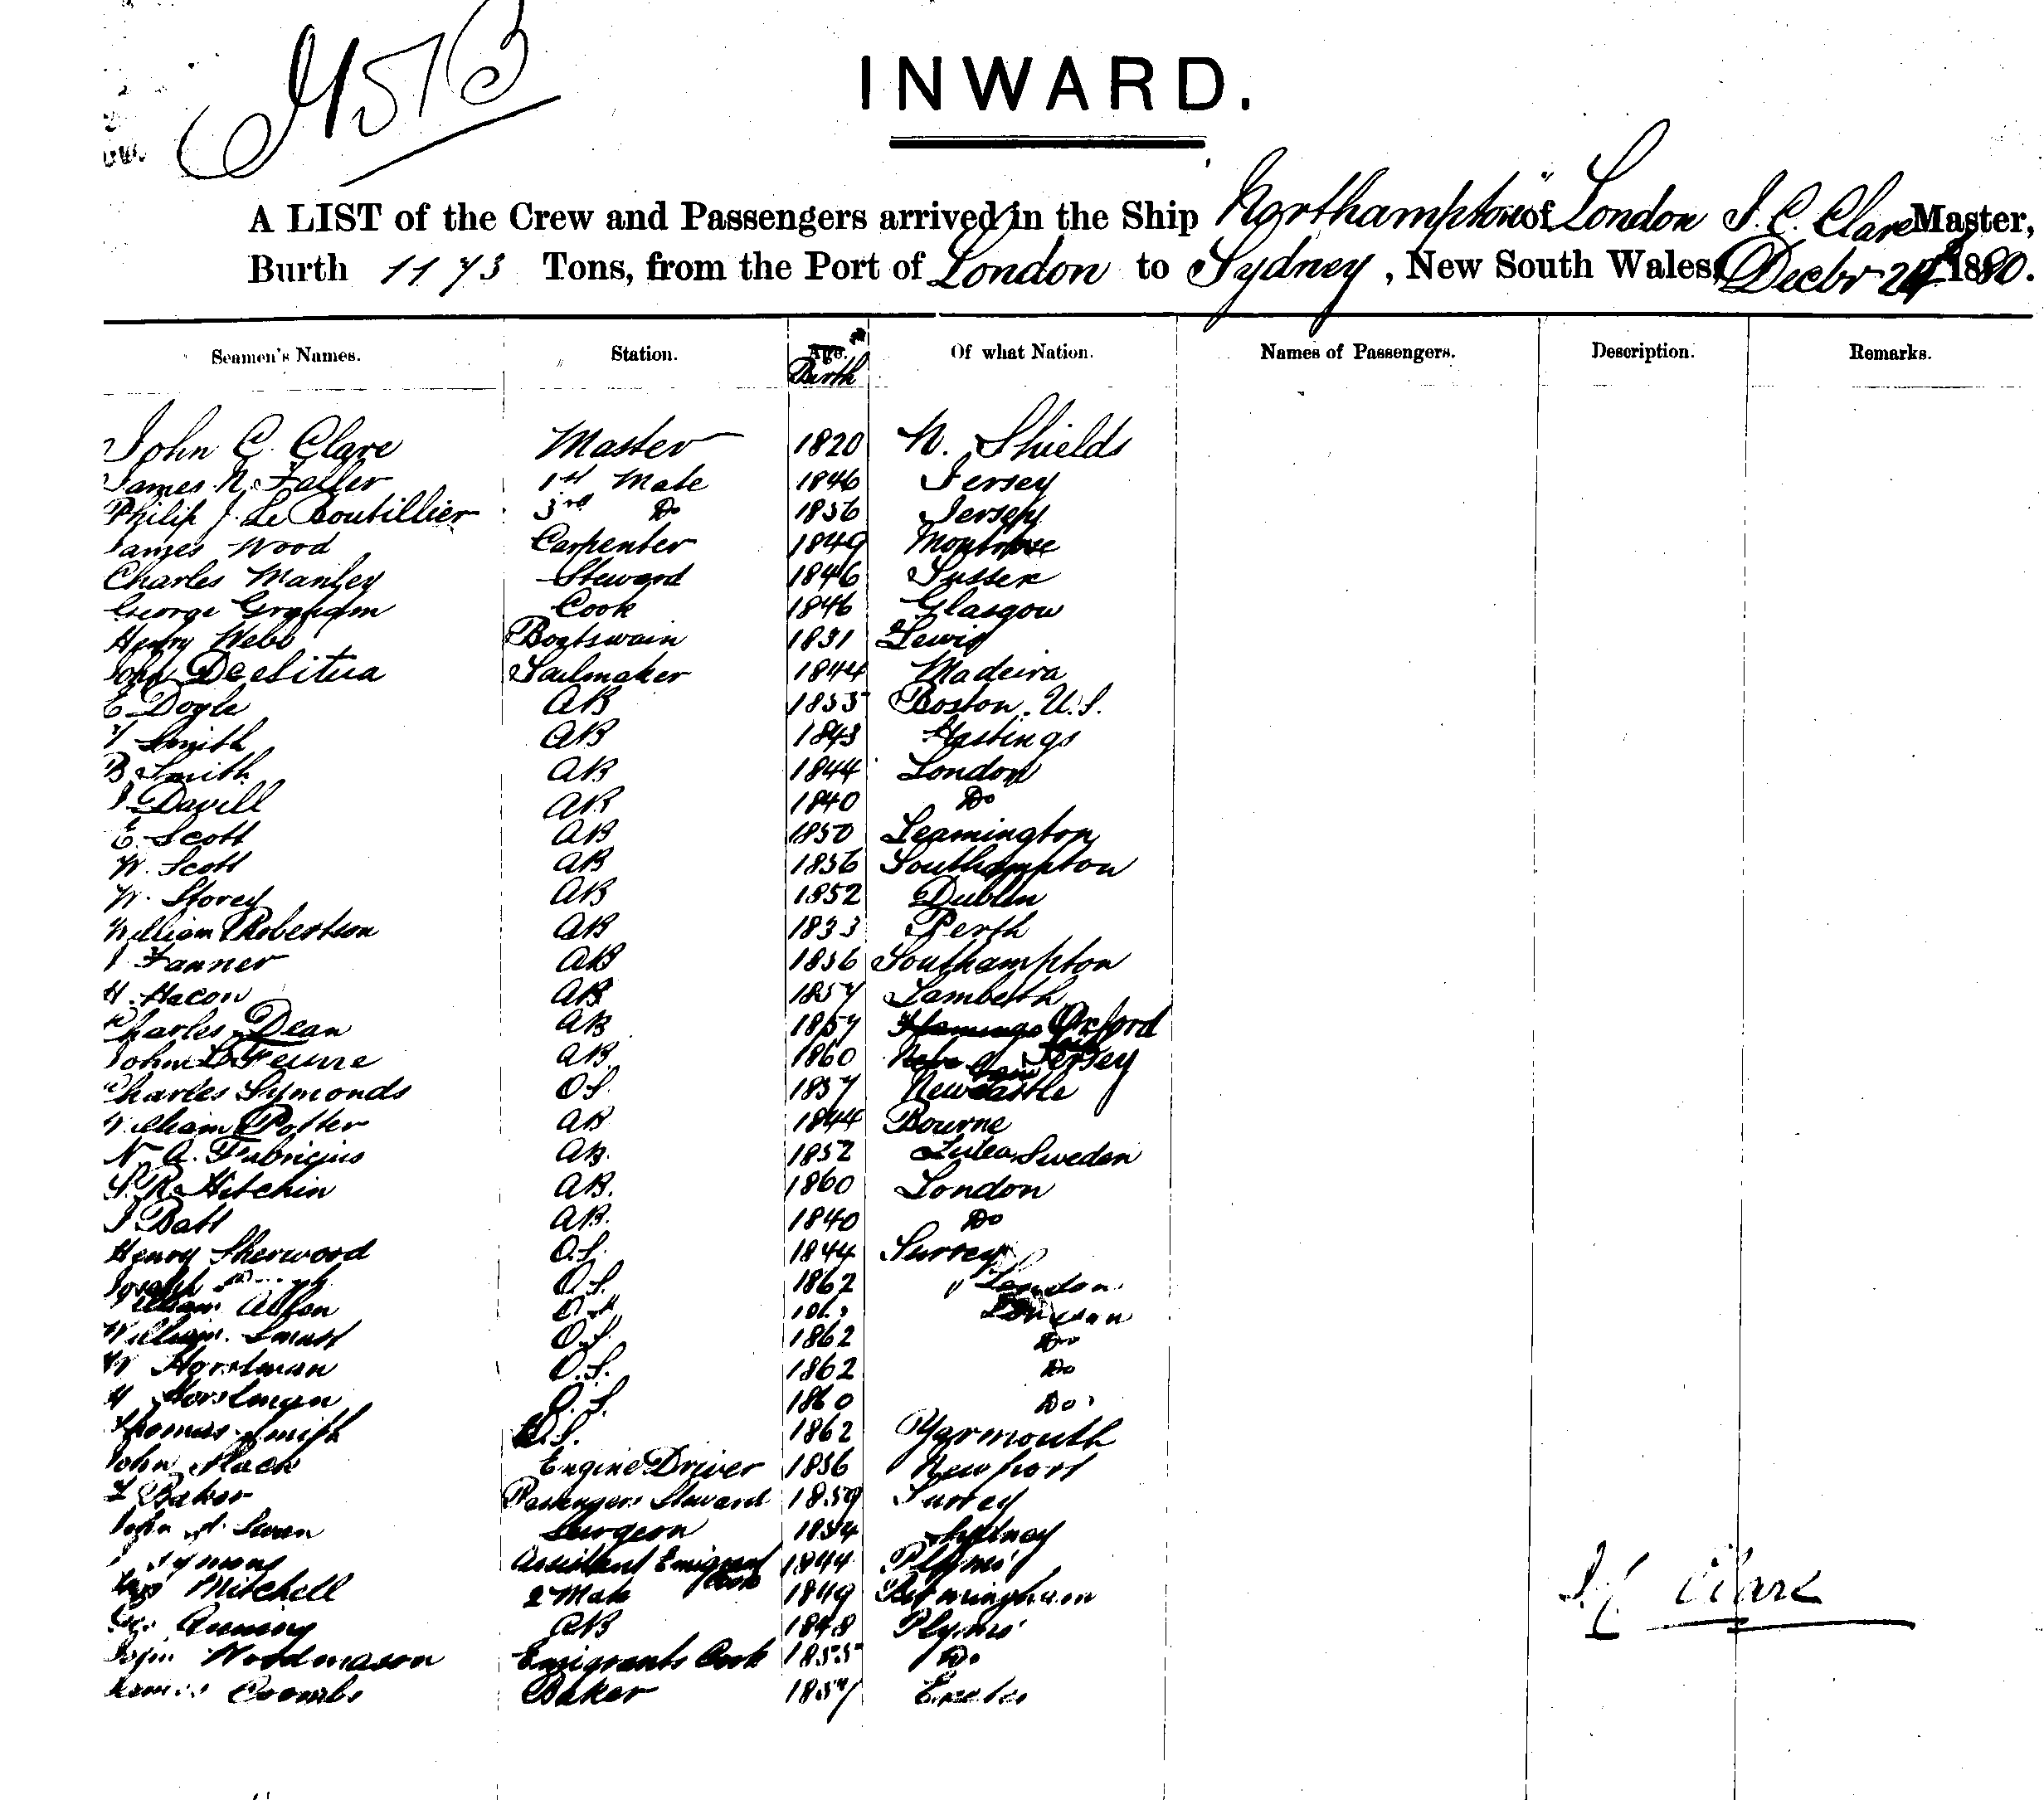 INWARD.
A LIST of the Crew and Passengers arrived in the Ship Northampton of London J. C. Clare Master,
Burth 1173 Tons, from the Port of London to Sydney, New South Wales, Decbr 24 1880.
Seamen's Names. Station. Age. Of what Nation. Names of Passengers. Description. Remarks.
Birth
John C. Clare Master 1820 N. Shields
James N. Faller 1st Mate 1846 Jersey
Philip J. Le Boutillier 3rd Do 1856 Jersey
James Wood Carpenter 1849 Montrose
Charles Manley Steward 1846 Sussex
George Graham Cook 1846 Glasgow
Henry Webb Boatswain 1831 Lewis
John Sailmaker 1844 Madeira
E Doyle AB 1855 Boston. U.S.
Smith AB 1843 Hastings
B Smith AB 1844 London
Davill AB 1840 Do
E. Scott AB 1850 Leamington
W. Scott AB 1856 Southampton
W. Storey AB 1852 Dublin
William Robertson AB 1833 Perth
Fanner AB 1856 Southampton
H. Hacon AB 1857 Lambeth
Charles Dean AB 1857 Oxford
John Le Feuvre AB 1860 Jersey
Charles Symonds OS. 1857 Newcastle
William Potter AB 1844 Bourne
N. A. Fabricius AB. 1852 Lulea Sweden
S. R. Hitchin AB. 1860 London
J Batt AB. 1840 Do
Henry Sherwood O.S. 1844 Surrey
Joseph O.S. 1862 " London
William London
William Smart O.S. 1862 Do
W Horstman O.S. 1862 Do
H Horstman O.S. 1860 Do
Thomas Smith O.S. 1862 Yarmouth
John Mack Engine Driver 1856 Newport
Baker Passengers Steward 1859 Surrey
John Swan Surgeon 1854 Sydney
Symons Assistant Emigrant Cook 1844 Plymo'
Mitchell 2 Mate 1849 Birmingham
J. C. Clare
AB 1848 Plymo'
Woodmason Emigrants Cook 1855 Do
Coombs Baker 1857 Exeter